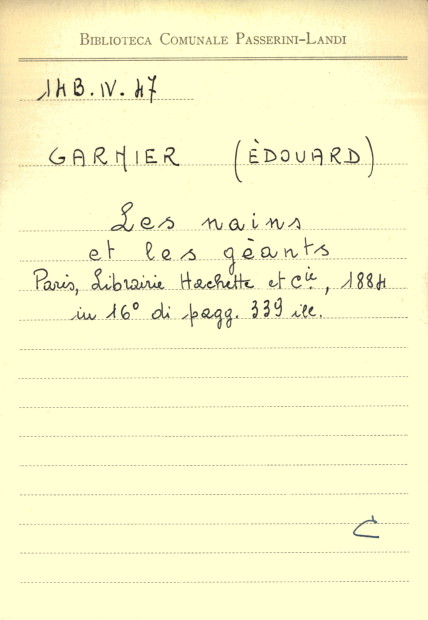 BIBLIOTECA COMUNALE PASSERINI-LANDI
14B.IV.47
GARNIER (ÈDOUARD)
Les nains
et les gèants
Paris, Librairie Hachette et Cie., 1884
in 16° di pagg. 339 ill.
C